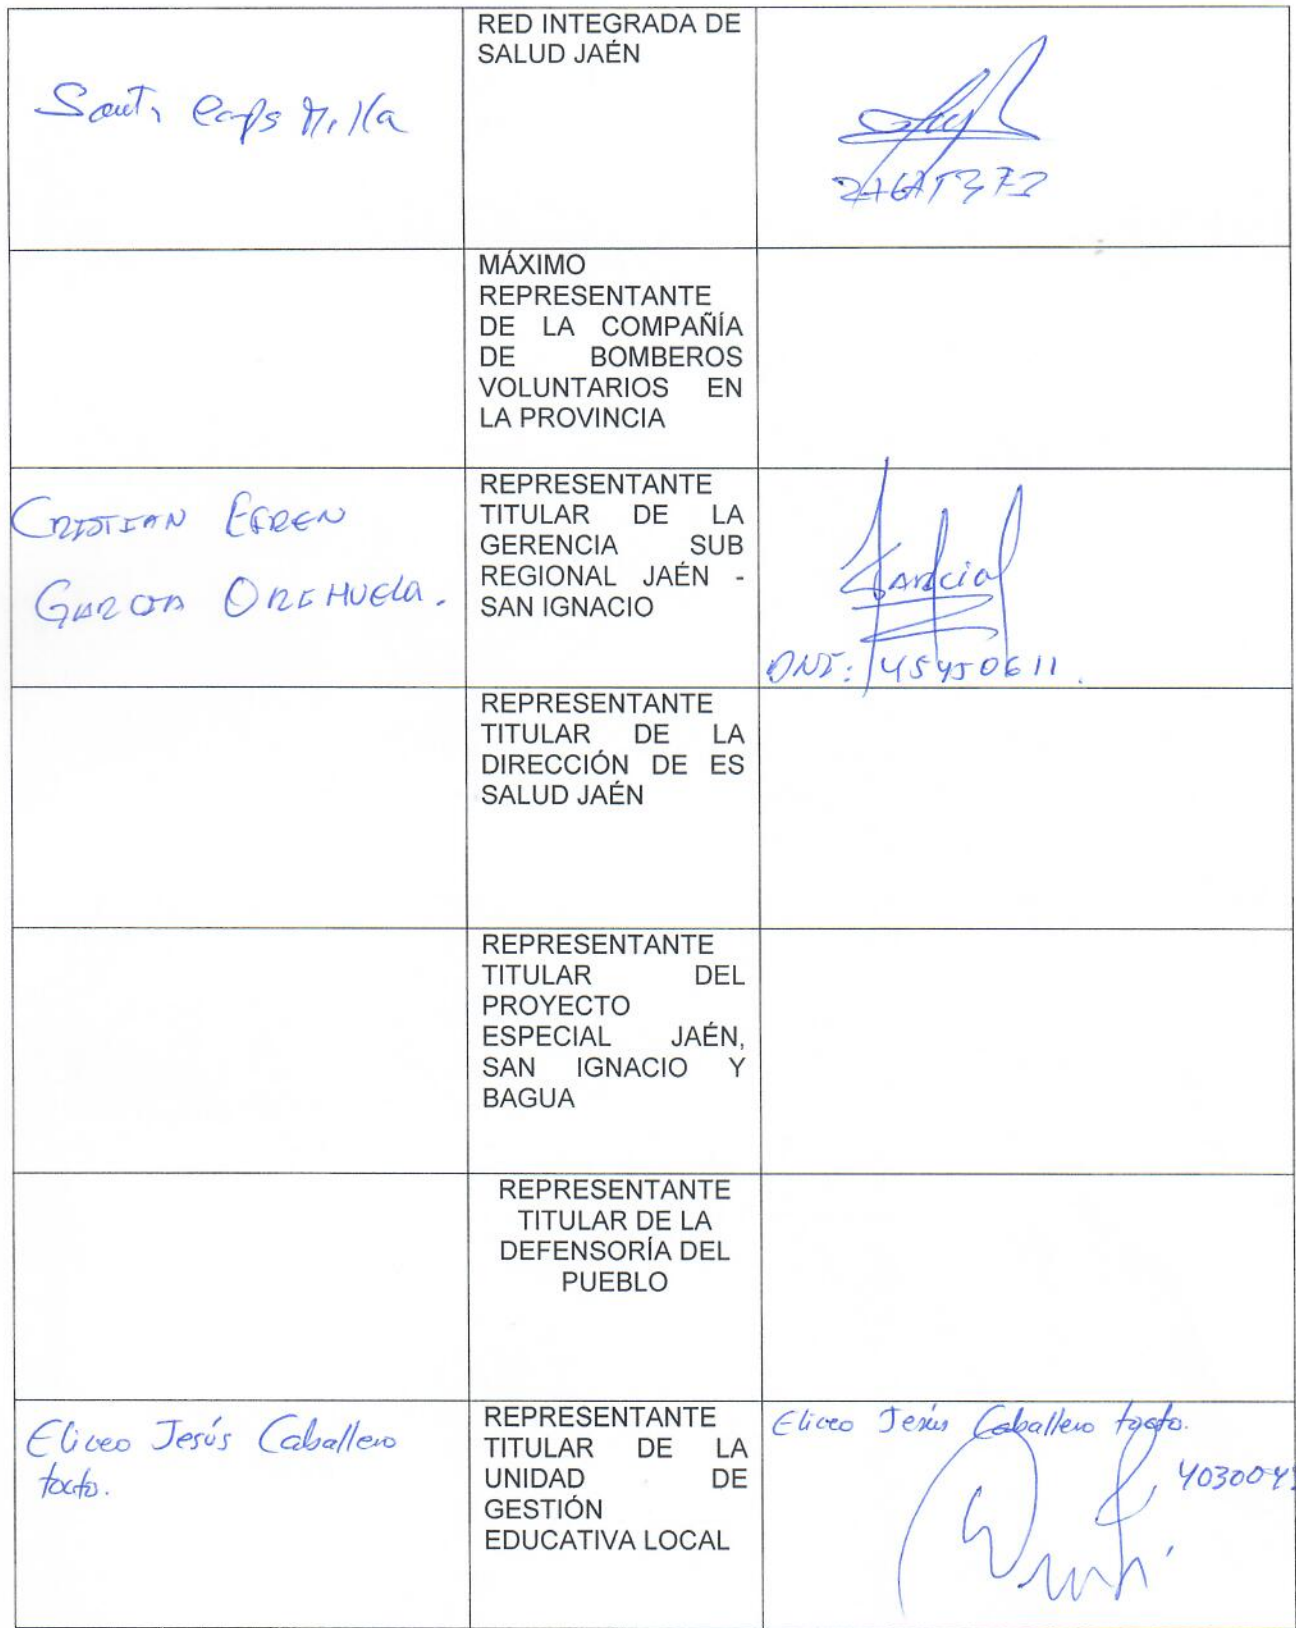 RED INTEGRADA DE
SALUD JAÉN
MÁXIMO
REPRESENTANTE
DE LA COMPAÑÍA
DE BOMBEROS
VOLUNTARIOS EN
LA PROVINCIA
CRISTIAN EFREN
GARCIA ORIHUELA.
REPRESENTANTE
TITULAR DE LA
GERENCIA SUB
REGIONAL JAÉN -
SAN IGNACIO
DNI: 45450611.
REPRESENTANTE
TITULAR DE LA
DIRECCIÓN DE ES
SALUD JAÉN
REPRESENTANTE
TITULAR DEL
PROYECTO
ESPECIAL JAÉN,
SAN IGNACIO Y
BAGUA
REPRESENTANTE
TITULAR DE LA
DEFENSORÍA DEL
PUEBLO
Eliceo Jesús Caballero
tocto.
REPRESENTANTE
TITULAR DE LA
UNIDAD DE
GESTIÓN
EDUCATIVA LOCAL
Eliceo Jesús Caballero tocto.